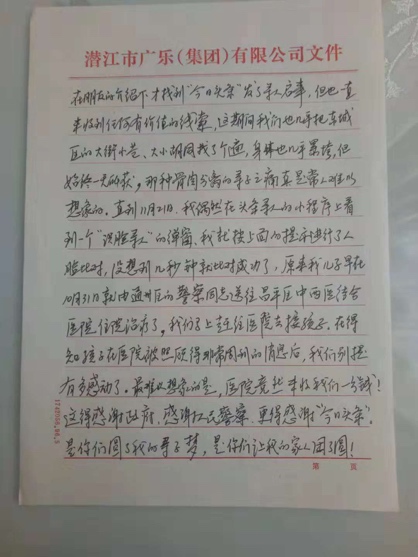 潜江市广乐(集团)有限公司文件
在朋友的介绍下才找到“今日头条”发了寻人启事,但也一直
未收到任何有价值的线索,这期间我们也几乎把东城
区的大街小巷、大小胡同找了个遍,身体也几乎累垮,但
始终一无所获,那种骨肉分离的寻子之痛真是常人难以
想象的。直到11月21日,我偶然在头条寻人的小程序上看
到一个“识脸寻人”的弹窗,我就按上面的提示进行了人
脸比对,没想到几秒钟就比对成功了,原来我儿子早在
10月31日就由通州区的警察同志送往昌平区中西医结合
医院住院治疗了。我们马上赶往医院去接孩子,在得
知孩子在医院被照顾得非常周到的情况后,我们别提
有多感动了。最难以想象的是,医院竟然未收我们一分钱!
这得感谢政府、感谢人民警察,更得感谢“今日头条”。
是你们圆了我的寻子梦,是你们让我的家人团了圆!
第 页